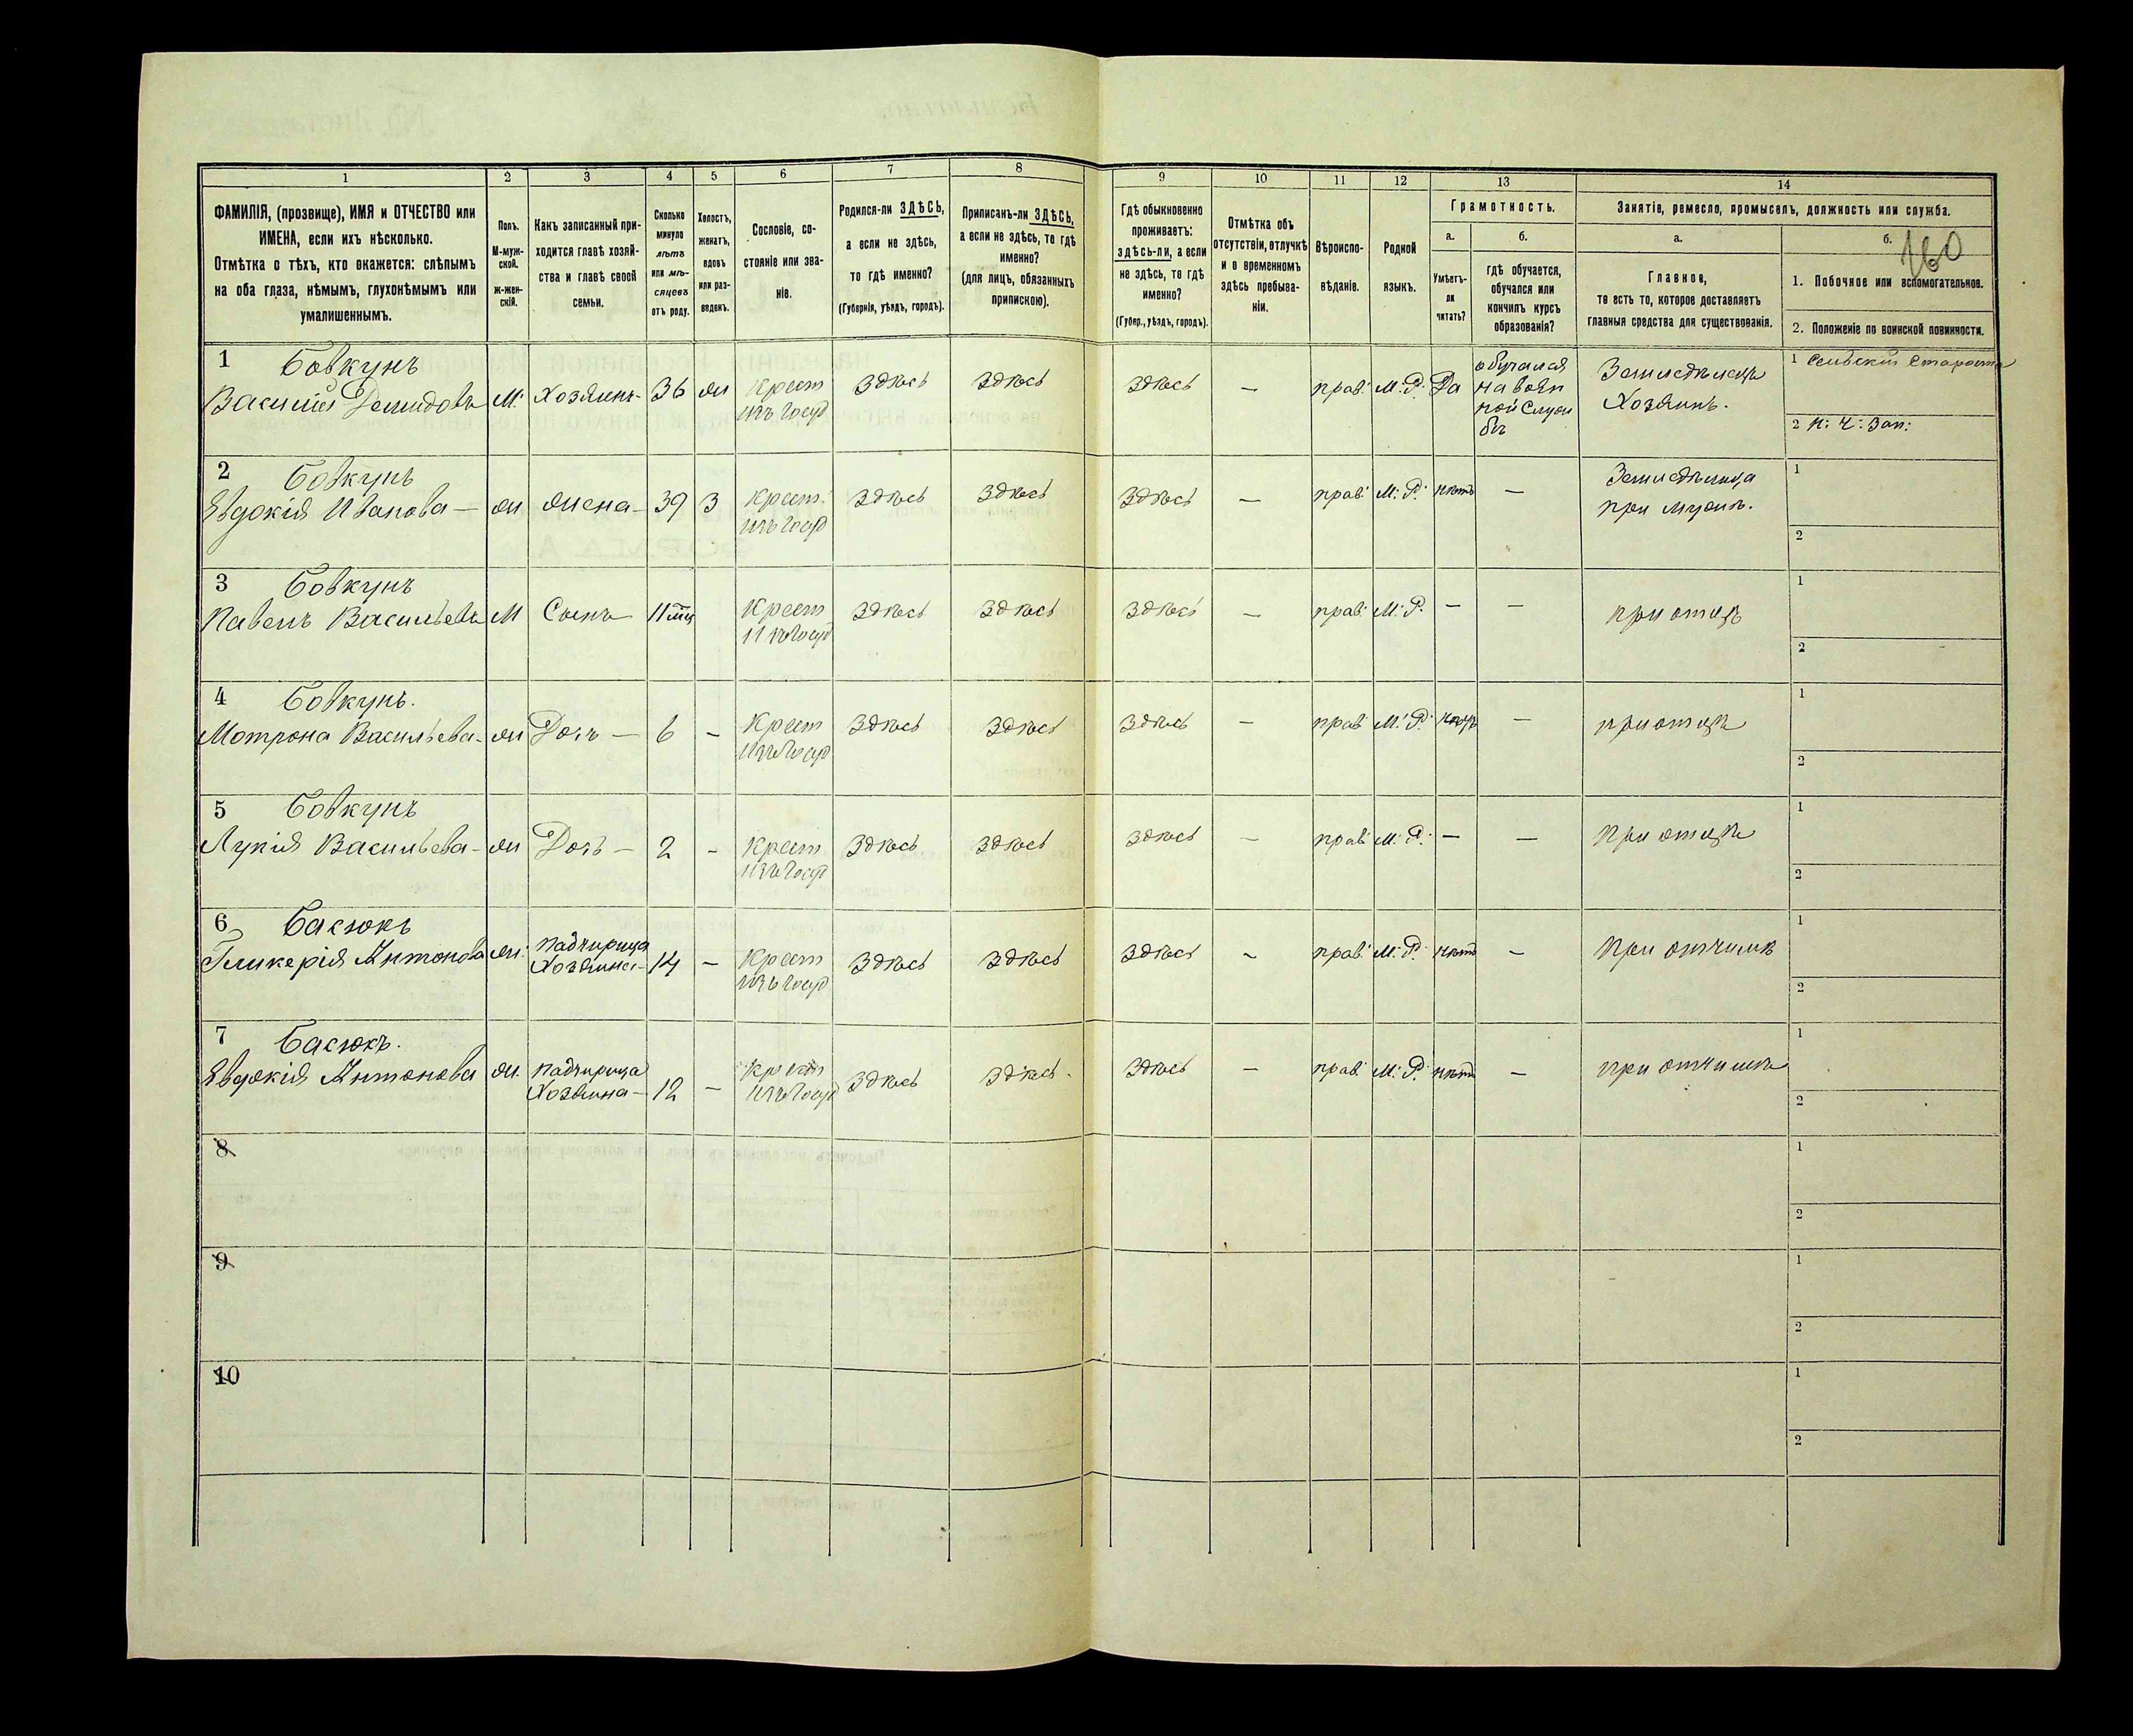 160
1 2 3 4 5 6 7 8 9 10 11 12 13 14
ФАМИЛІЯ, (прозвище), ИМЯ и ОТЧЕСТВО или
ИМЕНА, если ихъ нѣсколько.
Отмѣтка о тѣхъ, кто окажется: слѣпымъ
на оба глаза, нѣмымъ, глухонѣмымъ или
умалишеннымъ.
Полъ.
М-муж-
ской.
ж-жен-
скій.
Какъ записанный при-
ходится главѣ хозяй-
ства и главѣ своей
семьи.
Сколько
минуло
лѣтъ
или мѣ-
сяцевъ
отъ роду.
Холостъ,
женатъ,
вдовъ
или раз-
веденъ.
Сословіе, со-
стояніе или зва-
ніе.
Родился-ли ЗДѢСЬ,
а если не здѣсь,
то гдѣ именно?
(Губернія, уѣздъ, городъ).
Приписанъ-ли ЗДѢСЬ,
а если не здѣсь, то гдѣ
именно?
(для лицъ, обязанныхъ
припискою).
Гдѣ обыкновенно
проживаетъ:
здѣсь-ли, а если
не здѣсь, то гдѣ
именно?
(Губер., уѣздъ, городъ).
Отмѣтка объ
отсутствіи, отлучкѣ
и о временномъ
здѣсь пребыва-
ніи.
Вѣроиспо-
вѣданіе.
Родной
языкъ.
Грамотность.
а.
Умѣетъ-
ли
читать?
б.
гдѣ обучается,
обучался или
кончилъ курсъ
образованія?
Занятіе, ремесло, промыселъ, должность или служба.
а.
Главное,
то есть то, которое доставляетъ
главныя средства для существованія.
б.
1. Побочное или вспомогательное.
2. Положеніе по воинской повинности.
1 Бовкунъ
Василій Демидовъ М. Хозяинъ 36 ж Крест Здѣсь Здѣсь Здѣсь — прав. М. Р. Да
изъ госуд
обучался
на воен
ной служ
бѣ
Земледѣлецъ
Хозяинъ.
1 Сельскій Староста
2 н: ч: зап:
2 Бовкунъ
Явдокія Иванова — ж жена — 39 З Крест. Здѣсь Здѣсь Здѣсь — прав. М. Р. нѣтъ —
изъ госуд
Земледѣлица
при мужѣ.
1
2
3 Бовкунъ
Павелъ Васильевъ М Сынъ 11 мц Крест Здѣсь Здѣсь Здѣсь — прав. М. Р. — — при отцѣ
изъ госуд
1
2
4 Бовкунъ.
Мотрона Васильева ж Дочь — 6 — Крест Здѣсь Здѣсь Здѣсь — прав. М. Р. нѣтъ — при отцѣ
изъ госуд
1
2
5 Бовкунъ
Лукія Васильева — ж Дочь — 2 — Крест Здѣсь Здѣсь Здѣсь — прав. М. Р. — — при отцѣ
изъ госуд
1
2
6 Басюкъ
Гликерія Антонова ж. падчирица
Хозяина — 14 — Крест Здѣсь Здѣсь Здѣсь — прав. М. Р. нѣтъ — при отчимѣ
изъ госуд
1
2
7 Басюкъ.
Явдокія Антонова ж. падчирица
Хозяина — 12 — Крест Здѣсь Здѣсь. Здѣсь — прав. М. Р. нѣтъ — при отчимѣ
изъ госуд
1
2
8
1
2
9
1
2
10
1
2